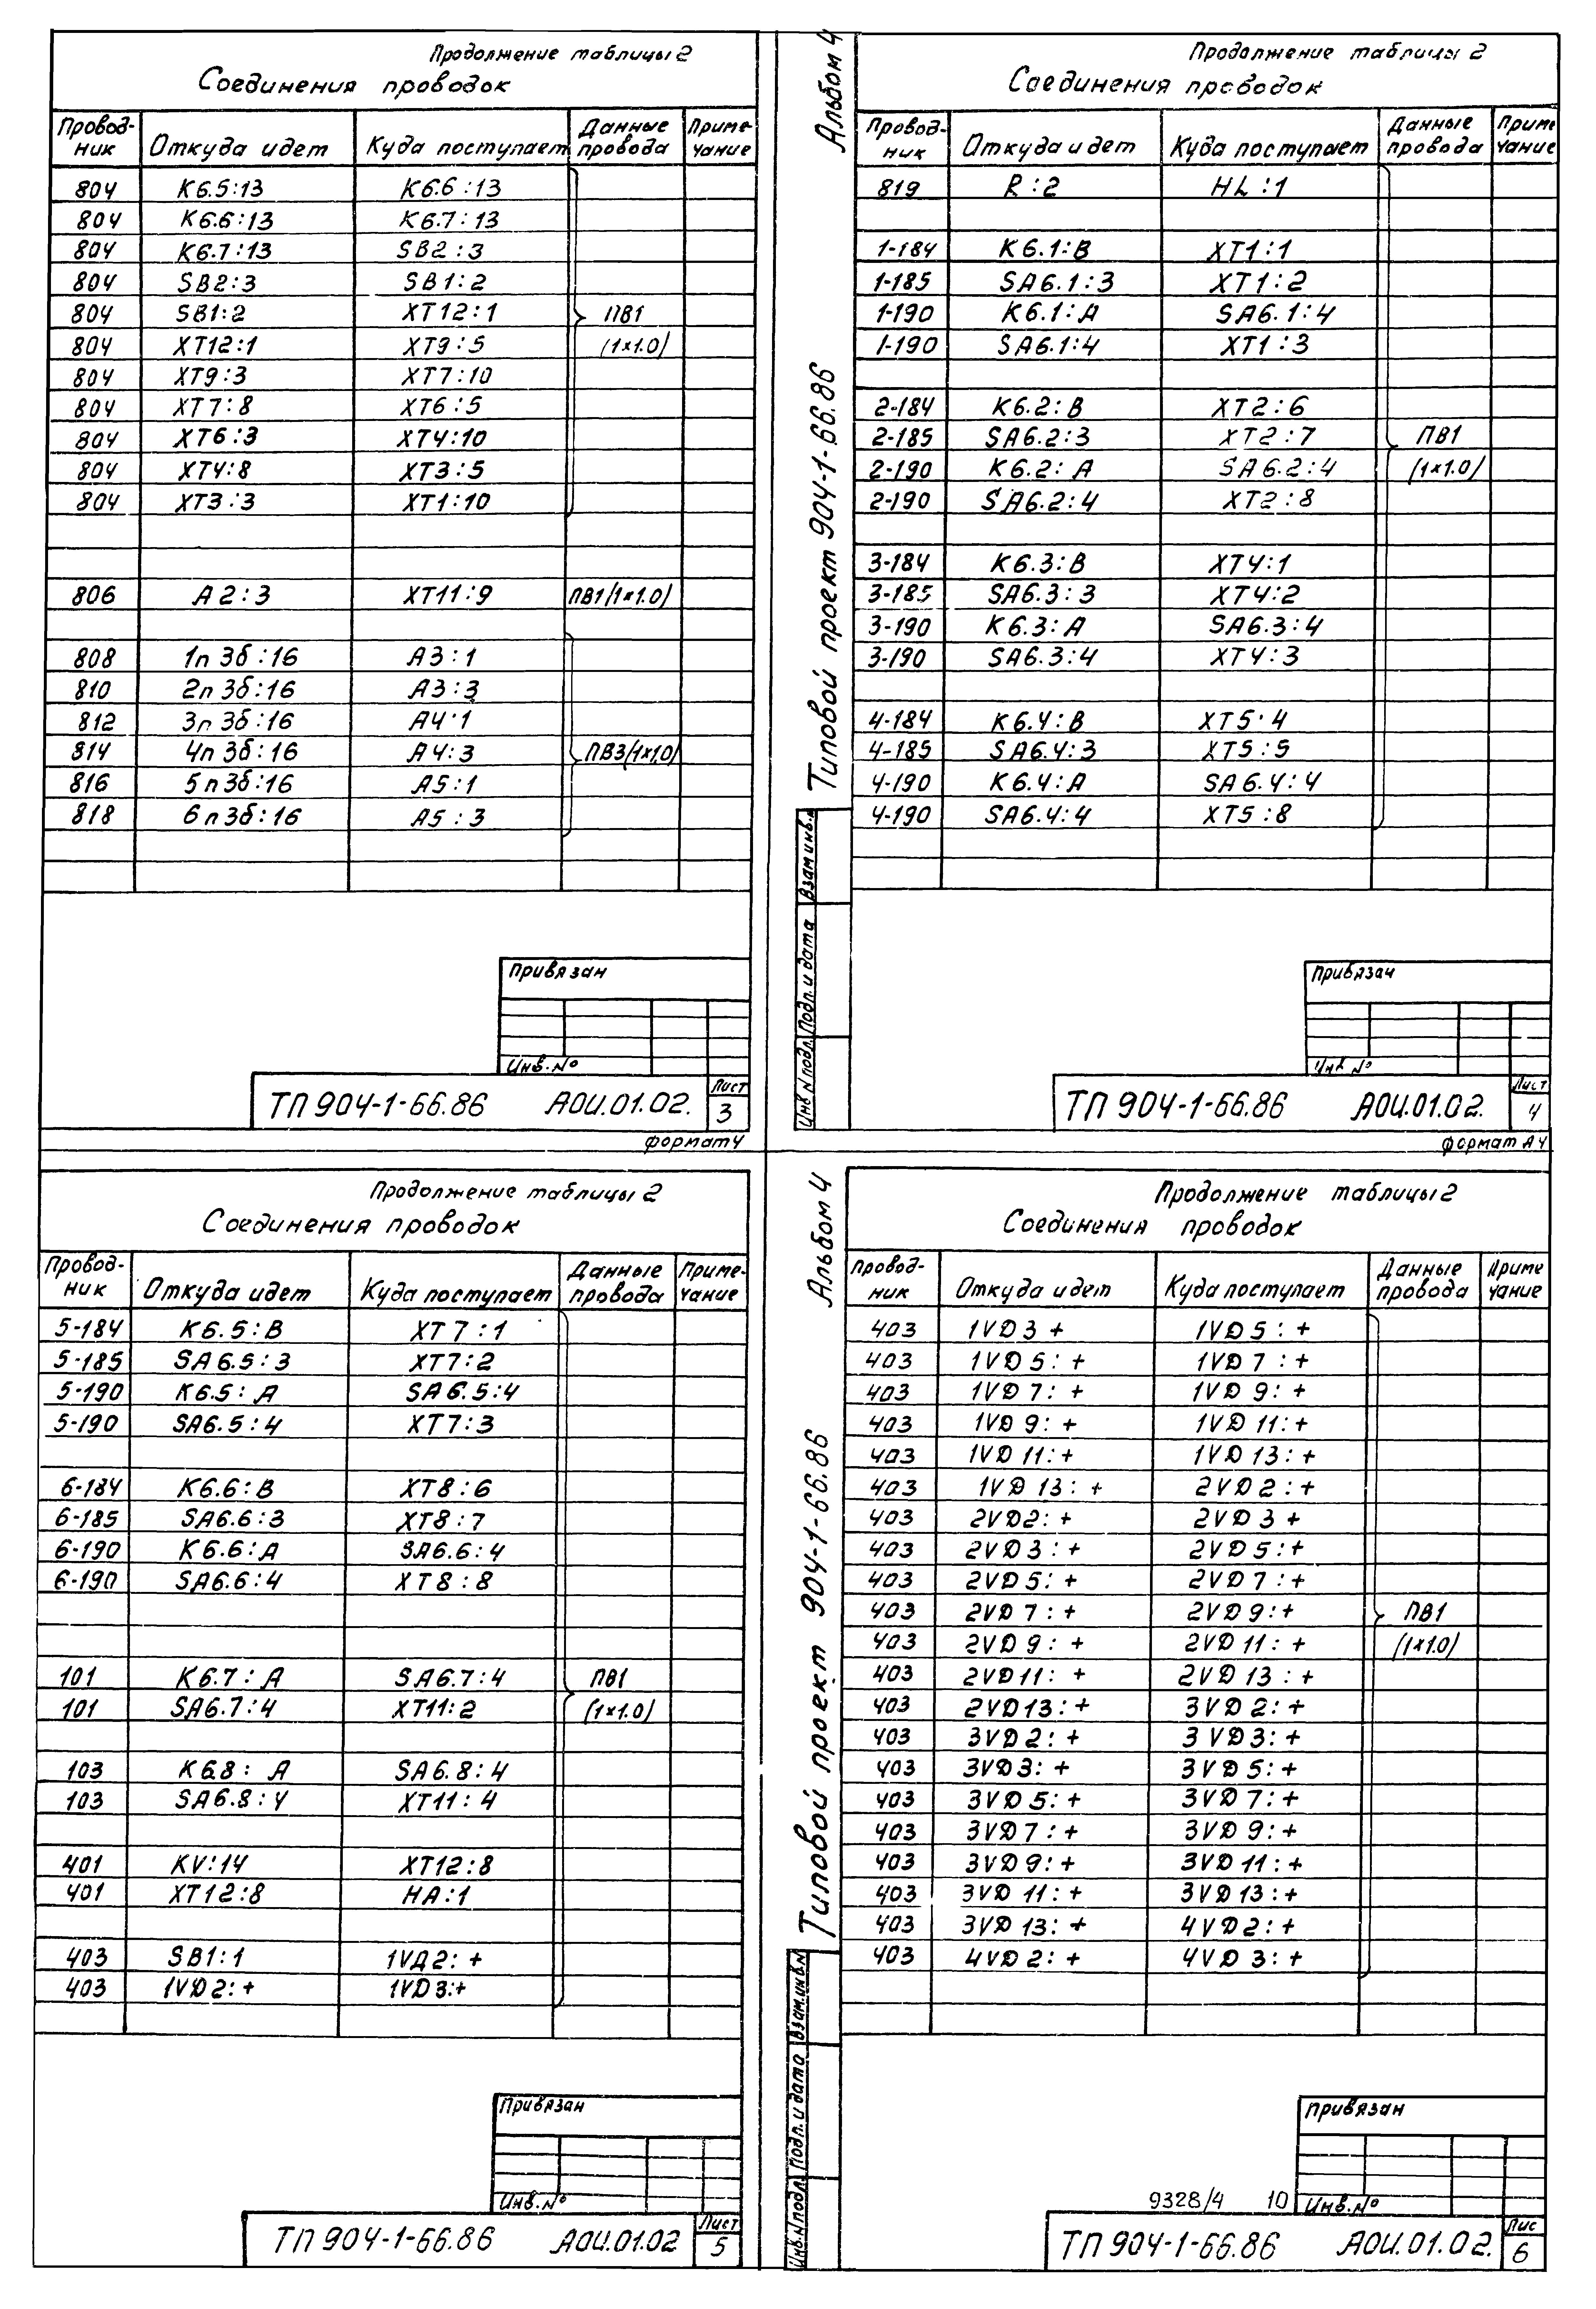 Продолжение таблицы 2
Соединения проводок
Провод-ник Откуда идет Куда поступает Данные провода Приме-чание
804 К6.5:13 К6.6:13
804 К6.6:13 К6.7:13
804 К6.7:13 SB2:3
804 SB2:3 SB1:2
804 SB1:2 XT12:1 ПВ1
804 XT12:1 XT9:5 (1×1.0)
804 XT9:3 XT7:10
804 XT7:8 XT6:5
804 XT6:3 XT4:10
804 XT4:8 XT3:5
804 XT3:3 XT1:10
806 А2:3 XT11:9 ПВ1(1×1.0)
808 1п3б:16 А3:1
810 2п3б:16 А3:3
812 3п3б:16 А4:1
814 4п3б:16 А4:3 ПВ3(1×1.0)
816 5п3б:16 А5:1
818 6п3б:16 А5:3
Привязан
Инв.№
ТП 904-1-66.86 АОИ.01.02. Лист 3
формат 4
Альбом 4
Типовой проект 904-1-66.86
Взам инв.№
Подп. и дата
Инв № подл.
Продолжение таблицы 2
Соединения проводок
Провод-ник Откуда идет Куда поступает Данные провода Приме чание
819 R:2 HL:1
1-184 К6.1:В XT1:1
1-185 SA6.1:3 XT1:2
1-190 К6.1:А SA6.1:4
1-190 SA6.1:4 XT1:3
2-184 К6.2:В XT2:6
2-185 SA6.2:3 XT2:7 ПВ1
2-190 К6.2:А SA6.2:4 (1×1.0)
2-190 SA6.2:4 XT2:8
3-184 К6.3:В XT4:1
3-185 SA6.3:3 XT4:2
3-190 К6.3:А SA6.3:4
3-190 SA6.3:4 XT4:3
4-184 К6.4:В XT5:4
4-185 SA6.4:3 XT5:5
4-190 К6.4:А SA6.4:4
4-190 SA6.4:4 XT5:8
Привязан
Инв №
ТП 904-1-66.86 АОИ.01.02. Лист 4
формат А4
Продолжение таблицы 2
Соединения проводок
Провод-ник Откуда идет Куда поступает Данные провода Приме-чание
5-184 К6.5:В XT7:1
5-185 SA6.5:3 XT7:2
5-190 К6.5:А SA6.5:4
5-190 SA6.5:4 XT7:3
6-184 К6.6:В XT8:6
6-185 SA6.6:3 XT8:7
6-190 К6.6:А SA6.6:4
6-190 SA6.6:4 XT8:8
101 К6.7:А SA6.7:4 ПВ1
101 SA6.7:4 XT11:2 (1×1.0)
103 К6.8:А SA6.8:4
103 SA6.8:4 XT11:4
401 KV:14 XT12:8
401 XT12:8 HA:1
403 SB1:1 1VД2:+
403 1VD2:+ 1VD3:+
Привязан
Инв.№
ТП 904-1-66.86 АОИ.01.02 Лист 5
Альбом 4
Типовой проект 904-1-66.86
Взам.инв.№
Подп. и дата
Инв.№ подл.
Продолжение таблицы 2
Соединения проводок
Провод-ник Откуда идет Куда поступает Данные провода Приме чание
403 1VD3 + 1VD5:+
403 1VD5:+ 1VD7:+
403 1VD7:+ 1VD9:+
403 1VD9:+ 1VD11:+
403 1VD11:+ 1VD13:+
403 1VD13:+ 2VD2:+
403 2VD2:+ 2VD3 +
403 2VD3:+ 2VD5:+
403 2VD5:+ 2VD7:+
403 2VD7:+ 2VD9:+ ПВ1
403 2VD9:+ 2VD11:+ (1×1.0)
403 2VD11:+ 2VD13:+
403 2VD13:+ 3VD2:+
403 3VD2:+ 3VD3:+
403 3VD3:+ 3VD5:+
403 3VD5:+ 3VD7:+
403 3VD7:+ 3VD9:+
403 3VD9:+ 3VD11:+
403 3VD11:+ 3VD13:+
403 3VD13:+ 4VD2:+
403 4VD2:+ 4VD3:+
Привязан
9328/4 10 Инв.№
ТП 904-1-66.86 АОИ.01.02. Лис 6